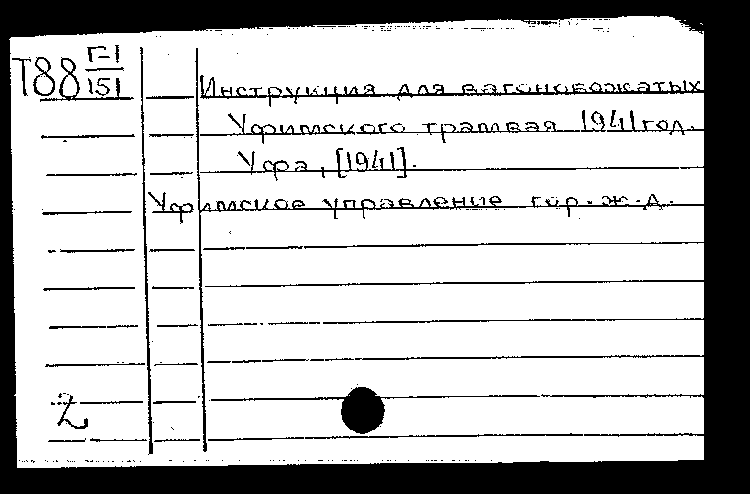 Т88 Г-I
151
Инструкция для вагоновожатых
Уфимского трамвая 1941 год.
Уфа, [1941].
Уфимское управление гор. ж.д.
2